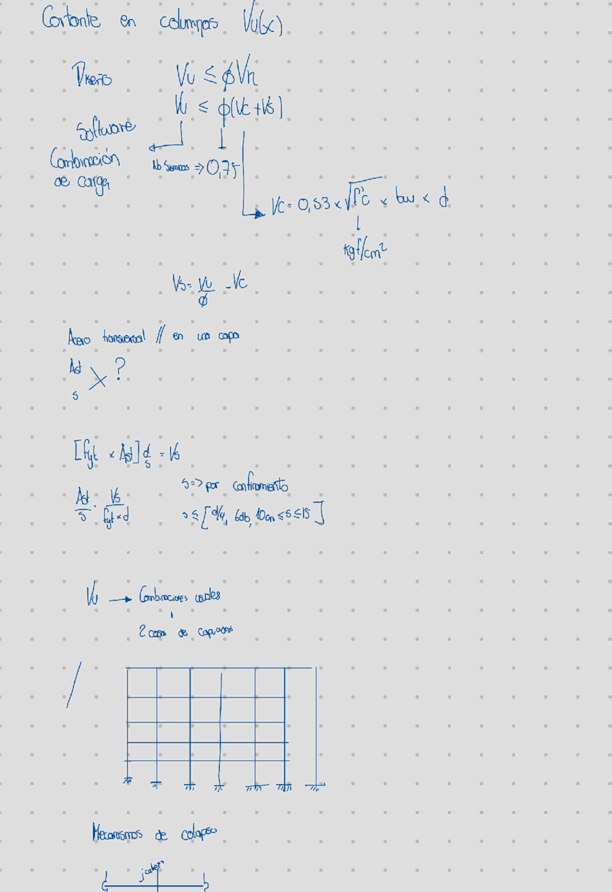 Cortante en columnas Vu(x)
Diseño Vu ≤ ϕVn
Vu ≤ ϕ(Vc+Vs)
Software
Combinación
de carga
No Sismicas => 0,75
Vc = 0,53 × √f'c × bw × d
kgf/cm²
Vs = Vu/ϕ - Vc
Acero transversal // en una capa
Ast
s
?
[fyt × Ast] d/s = Vs
s => por confinamiento
Ast/s = Vs/(fyt × d)
s ≤ [d/4, 6db, 10cm ≤ s ≤ 15]
Vu → Combinaciones usuales
2 casos de capacidad
Mecanismos de colapso